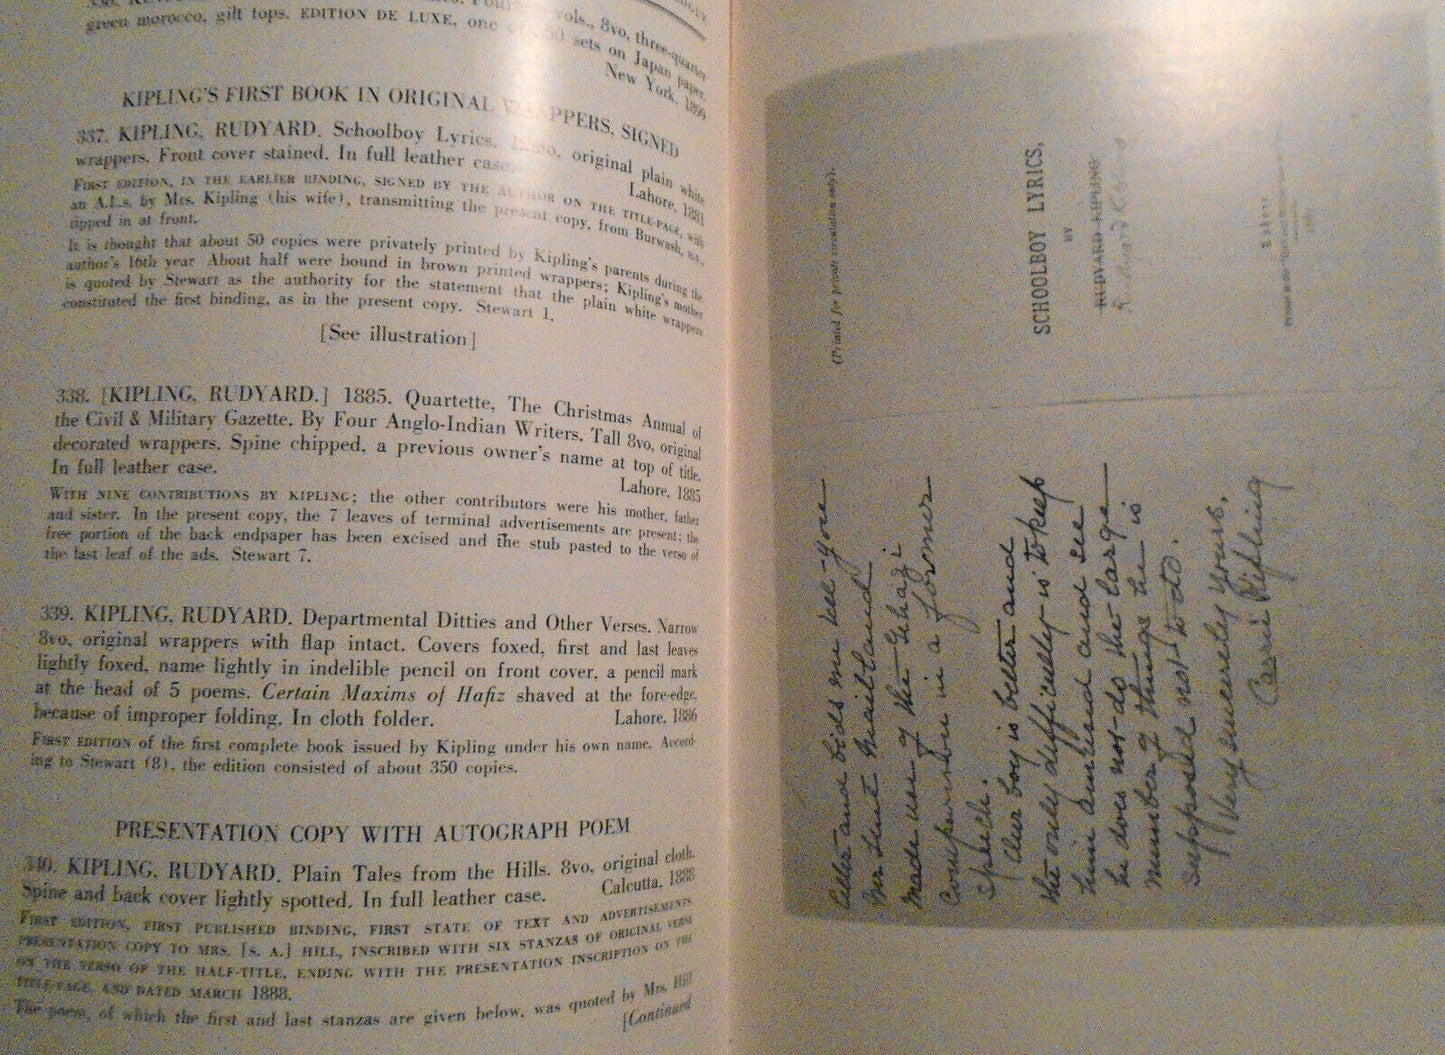 vols., 8vo, three-quarter
green morocco, gilt tops. EDITION DE LUXE, one of 350 sets on Japan paper.
New York, 1899
KIPLING'S FIRST BOOK IN ORIGINAL WRAPPERS, SIGNED
337. KIPLING, RUDYARD. Schoolboy Lyrics. original plain white
wrappers. Front cover stained. In full leather case.
Lahore, 1881
FIRST EDITION, IN THE EARLIER BINDING, SIGNED BY THE AUTHOR ON THE TITLE-PAGE, with
an A.L.s. by Mrs. Kipling (his wife), transmitting the present copy, from Burwash,
tipped in at front.
It is thought that about 50 copies were privately printed by Kipling's parents during the
author's 16th year About half were bound in brown printed wrappers; Kipling's mother
is quoted by Stewart as the authority for the statement that the plain white wrappers
constituted the first binding, as in the present copy. Stewart 1.
[See illustration]
338. [KIPLING, RUDYARD.] 1885. Quartette, The Christmas Annual of
the Civil & Military Gazette. By Four Anglo-Indian Writers. Tall 8vo, original
decorated wrappers. Spine chipped, a previous owner's name at top of title.
In full leather case.
Lahore, 1885
WITH NINE CONTRIBUTIONS BY KIPLING; the other contributors were his mother, father
and sister. In the present copy, the 7 leaves of terminal advertisements are present; the
free portion of the back endpaper has been excised and the stub pasted to the verso of
the last leaf of the ads. Stewart 7.
339. KIPLING, RUDYARD. Departmental Ditties and Other Verses. Narrow
8vo, original wrappers with flap intact. Covers foxed, first and last leaves
lightly foxed, name lightly in indelible pencil on front cover, a pencil mark
at the head of 5 poems. Certain Maxims of Hafiz shaved at the fore-edge,
because of improper folding. In cloth folder.
Lahore, 1886
FIRST EDITION of the first complete book issued by Kipling under his own name. Accord-
ing to Stewart (8), the edition consisted of about 350 copies.
PRESENTATION COPY WITH AUTOGRAPH POEM
340. KIPLING, RUDYARD. Plain Tales from the Hills. 8vo, original cloth.
Spine and back cover lightly spotted. In full leather case.
Calcutta, 1888
FIRST EDITION, FIRST PUBLISHED BINDING, FIRST STATE OF TEXT AND ADVERTISEMENTS.
PRESENTATION COPY TO MRS. [S. A.] HILL, INSCRIBED WITH SIX STANZAS OF ORIGINAL VERSE
ON THE VERSO OF THE HALF-TITLE, ENDING WITH THE PRESENTATION INSCRIPTION ON THE
TITLE-PAGE, AND DATED MARCH 1888.
The poem, of which the first and last stanzas are given below, was quoted by Mrs. Hill
[Continued
(Printed for private circulation only).
SCHOOLBOY LYRICS,
BY
RUDYARD KIPLING
Rudyard Kipling
and bids me tell you
made use of the Ghazi
Companion in a former
Spell.
the only difficulty is to keep
him amused and see
he does not do the large
number of things he is
supposed not to do.
Very sincerely yours,
Carrie Kipling